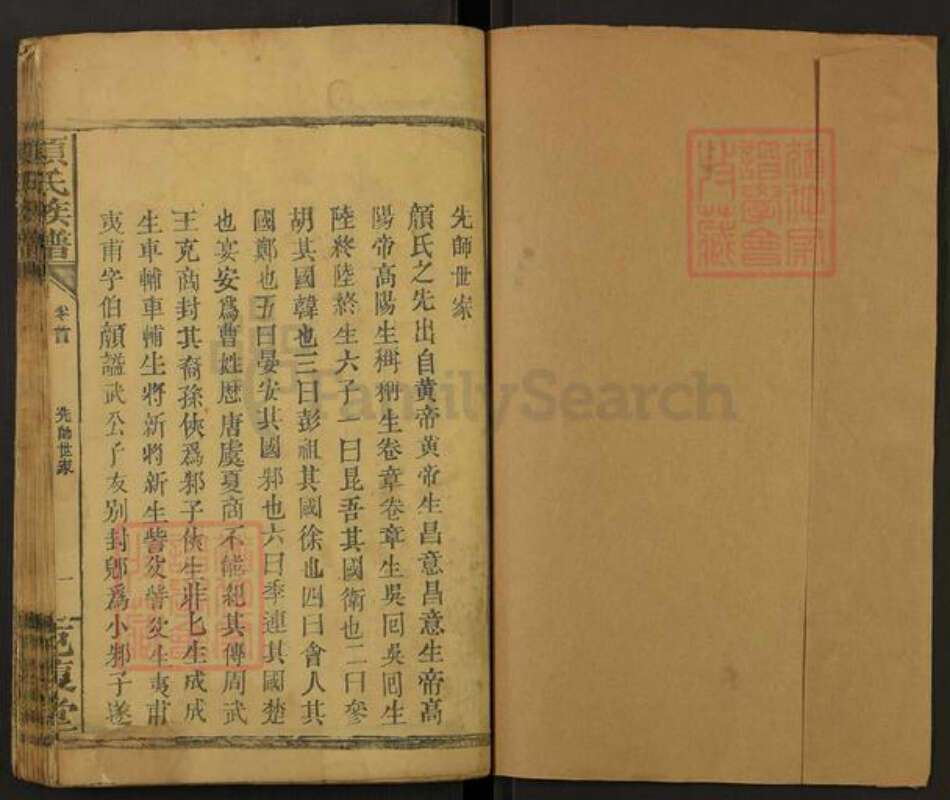 先師世家
顏氏之先出自黃帝黃帝生昌意昌意生帝高
陽帝高陽生稱稱生卷章卷章生吳回吳回生
陸終陸終生六子一曰昆吾其國衛也二曰參
胡其國韓也三曰彭祖其國徐也四曰會人其
國鄭也五曰晏安其國邾也六曰季連其國楚
也宴安爲曹姓歷唐虞夏商不能紀其傳周武
王克商封其裔孫俠爲邾子俠生非非生成成
生車輔車輔生將新將新生訾父訾父生夷甫
夷甫字伯顏諡武公子友別封郳爲小邾子遂
顏氏族譜
卷首
先師世家
一
克復堂
FamilySearch